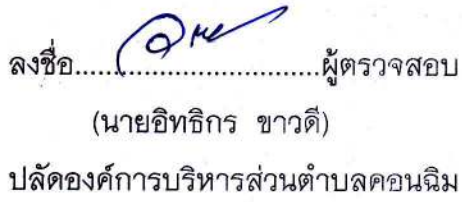 ลงชื่อ..................................ผู้ตรวจสอบ
(นายอิทธิกร ขาวดี)
ปลัดองค์การบริหารส่วนตำบลคอนฉิม